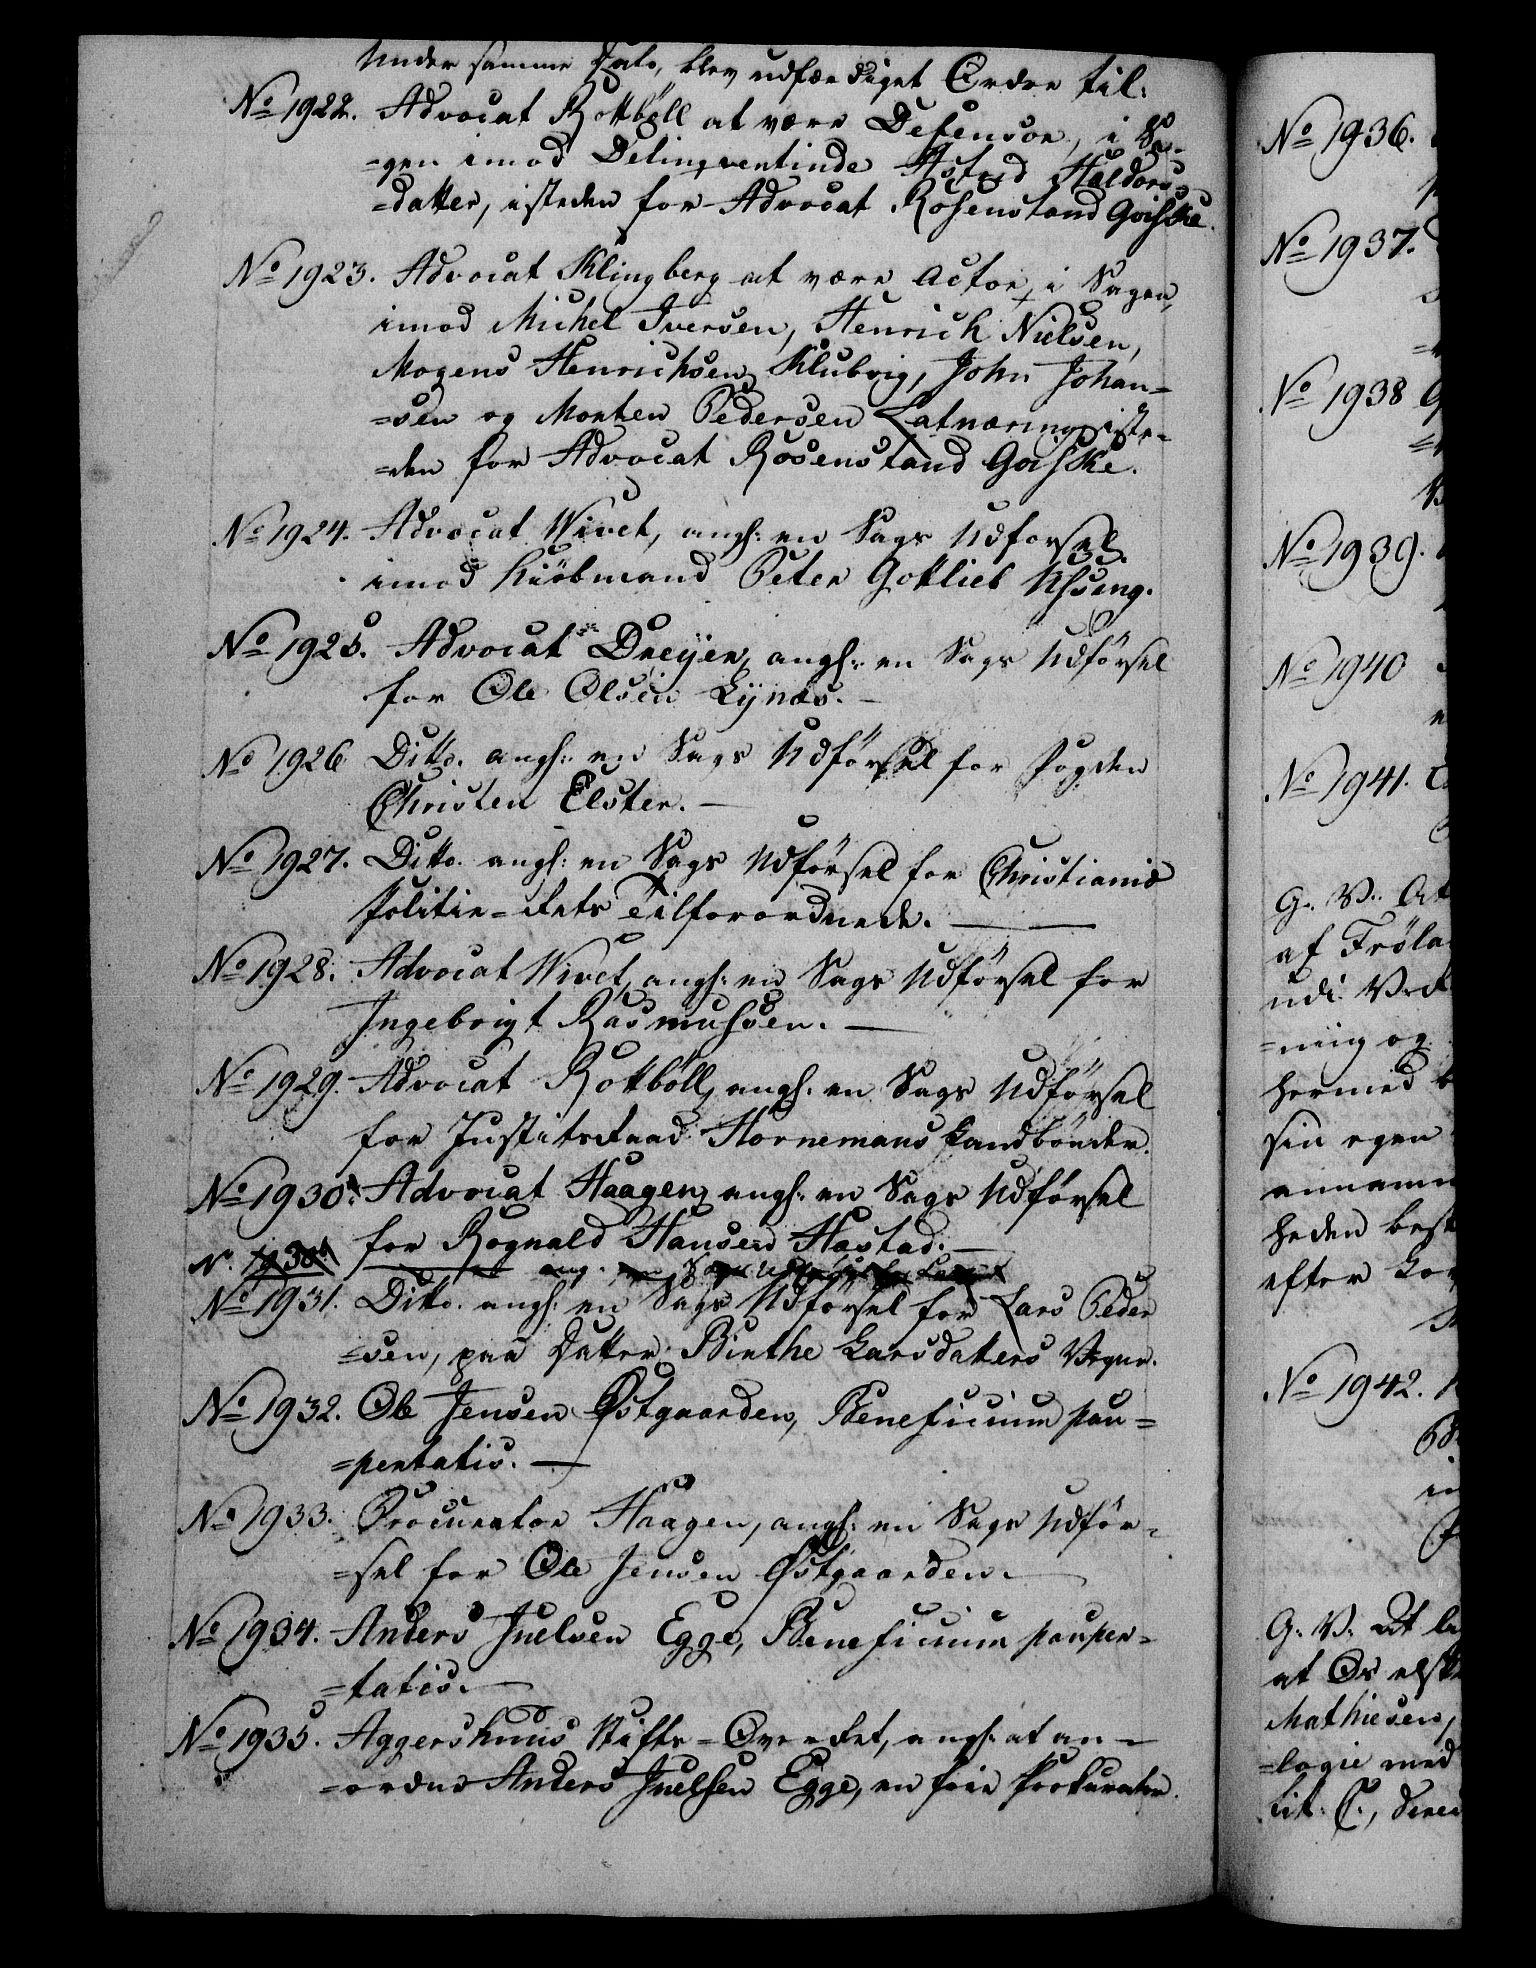 Under samme Dato, blev udfærdiget Ordre til:
No 1922. Advocat Rottböll at være Defensor, i Sa-
=gen imod Delinqventinde Astrid Haldors-
=datter, isteden for Advocat Rosenstand Goiske.
No 1923. Advocat Klingberg at være Actor, i Sagen,
imod Michel Iversen, Henrich Nielsen,
Mogens Henrichsen Klubvig, John Johan-
=sen og Morten Pedersen Latnæring iste-
=den for Advocat Rosenstand Goiske.
No 1924. Advocat Wivet, angs: en Sags Udførsel
imod Kiöbmand Peter Gottlieb
No 1925. Advocat Dreÿer, angs: en Sags Udførsel
for Ole Olsen Lÿnæs. —
No 1926. Ditto. angs: en Sags Udførsel for Fogden
Christen Elster. —
No 1927. Ditto. angs: en Sags Udførsel for Christiania
Politie-Rets Tilforordnede. —
No 1928. Advocat Wivet, angs: en Sags Udførsel for
Ingebrigt Rasmussen. —
No 1929. Advocat Rottböll, angs: en Sags Udførsel
for Justitsraad Hornemans Landbönder.
No 1930. Advocat Haagen, angs: en Sags Udførsel
for Rognald Hansen Hastad. —
No 1931. Ditto. angs: en Sags Udførsel for Lars Peder
=sen, paa Datter Birthe Larsdatters Vegne.
No 1932. Ole Jensen Østgaarden, Beneficium pau=
=pertatis. —
No 1933. Procurator Haagen, angs: en Sags Udför-
=sel for Ole Jensen Østgaarden. —
No 1934. Anders Juelsen Egge, Beneficium pauper-
=tatis. —
No 1935. Aggershuus Stifts-Overret, angs: at an-
=ordne Anders Juelsen Egge, en frie Prokurator.
No 1936.
No 1937.
No 1938
No 1939.
No 1940
No 1941.
G. V. At
af Fröla
udi
=ning og
hermed
sin egen
annamm
heden best
efter
No 1942.
G. V. At
at Os elsk
Mathiesen,
=logie med
Lit: C.,